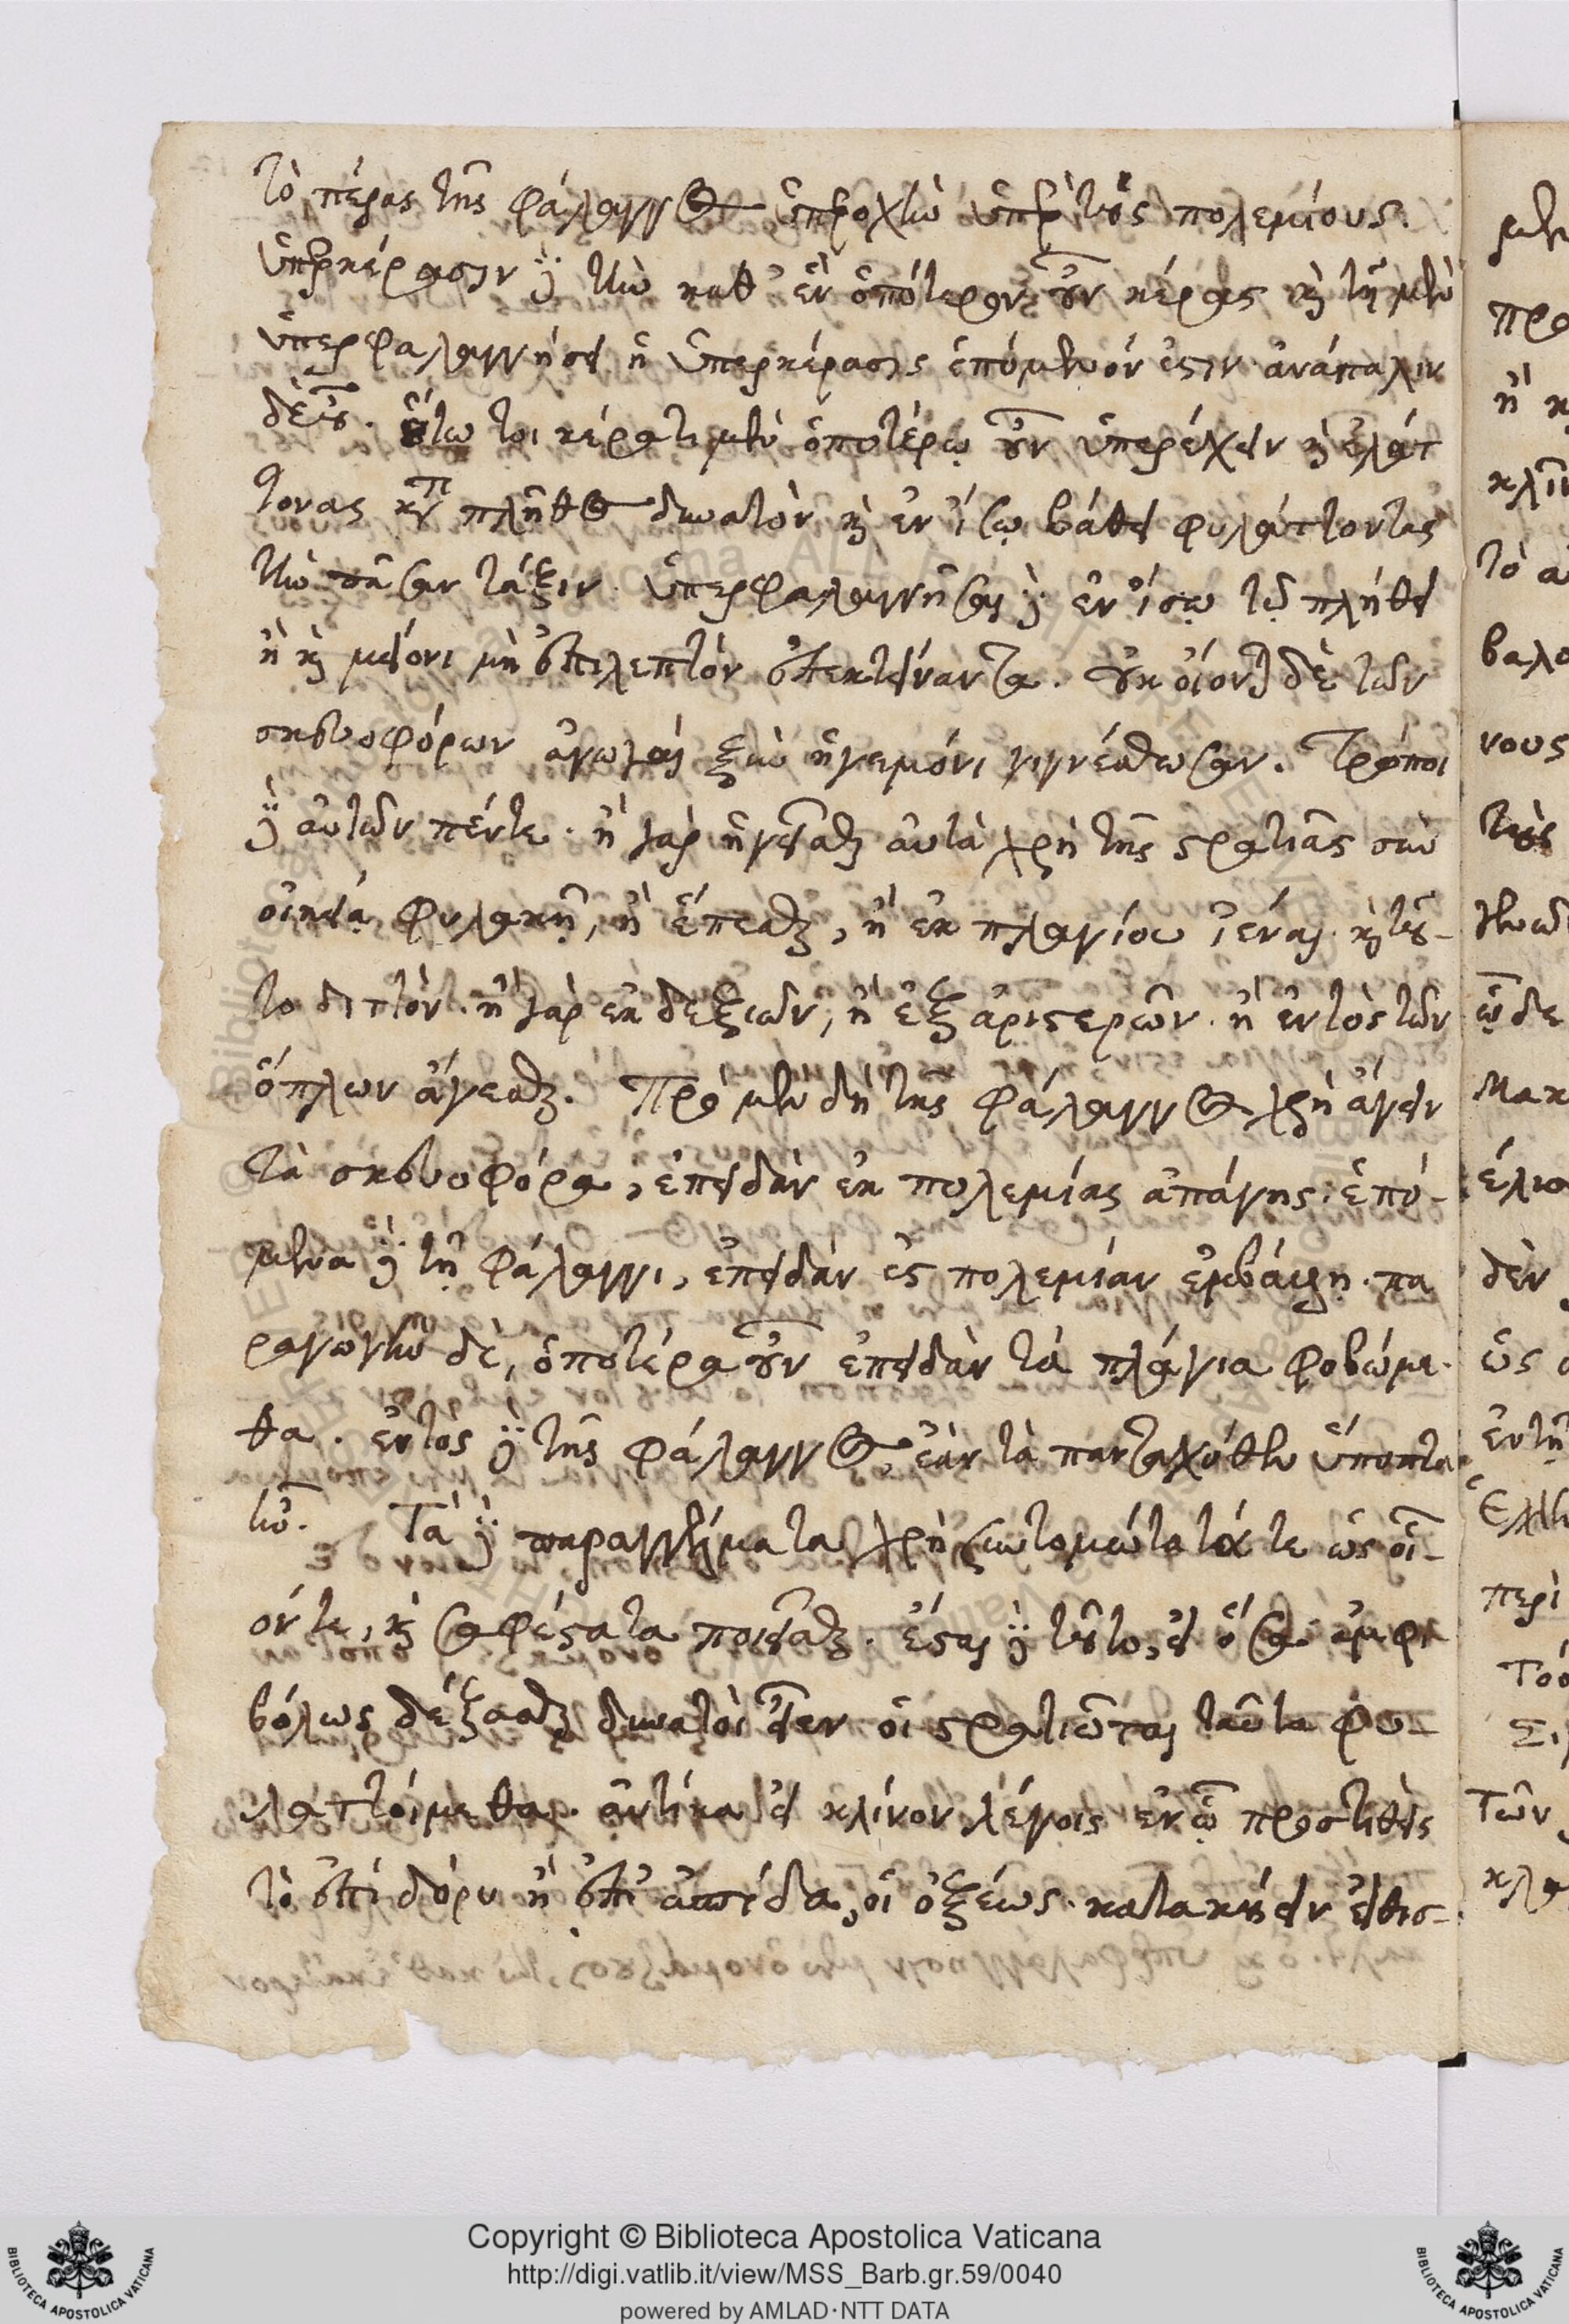 τὸ πέρας τῆς φάλαγγος ὑπεροχὴν ὑπὲρ τοὺς πολεμίους.
ὑπερκέρασιν δὲ τὴν καθ' ἓν ὁπότερον οὖν κέρας καὶ τῇ μὲν
ὑπερφαλαγγήσει ἡ ὑπερκέρασις ἑπόμενόν ἐστιν ἀνάπαλιν
δὲ οὔ. οὕτω τοι κέρατι μὲν ὁποτέρῳ οὖν ὑπερέχειν καὶ ἐλάτ
τονας πλῆθος δυνατὸν καὶ ἐν ἴσῳ βάθει φυλάττοντας
τὴν πᾶσαν τάξιν. ὑπερφαλαγγῆσαι δὲ ἐν ἴσῳ τῷ πλήθει
ἢ καὶ μείονι μὴ ἐπιλεπτὸν ἐπεκτείναντα. οὐκ οἷόν τε δὲ τῶν
σκευοφόρων ἀγωγαὶ ξὺν ἡγεμόνι γιγνέσθωσαν. Τρόποι
δὲ αὐτῶν πέντε. ἢ γὰρ ἡγεῖσθαι αὐτὰ χρὴ τῆς στρατιᾶς σὺν
οἰκείᾳ φυλακῇ, ἢ ἕπεσθαι, ἢ ἐκ πλαγίου ἰέναι. καὶ τοῦ-
το διττόν. ἢ γὰρ ἐκ δεξιῶν, ἢ ἐξ ἀριστερῶν. ἢ ἐντὸς τῶν
ὅπλων ἄγεσθαι. Πρὸ μὲν δὴ τῆς φάλαγγος χρὴ ἄγειν
τὰ σκευοφόρα, ἐπειδὰν ἐκ πολεμίας ἀπάγῃς. ἑπό-
μενα δὲ τῇ φάλαγγι, ἐπειδὰν ἐς πολεμίαν ἐμβάλῃ. πα
ραγωγὴν δὲ, ὁποτέρα οὖν ἐπειδὰν τὰ πλάγια φοβώμε-
θα. ἐντὸς δὲ τῆς φάλαγγος, ἐὰν τὰ πανταχόθεν ὕποπτα
ἦν. Τὰ δὲ παραγγέλματα χρὴ ξυντομώτατά τε ὡς οἷ-
όν τε, καὶ σαφέστατα ποιεῖσθαι. ἔσται δὲ τοῦτο, εἰ ὅσα ἀμφι
βόλως δέξασθαι δυνατοὶ εἶεν οἱ στρατιῶται ταῦτα φυ-
λαττοίμεθα. αὐτίκα εἰ κλίνον λέγοις ἐν ᾧ προστιθεὶς
τὸ ἐπὶ δόρυ ἢ ἐπ' ἀσπίδα, οἱ ὀξέως κατακούειν εἰθισ-
Copyright © Biblioteca Apostolica Vaticana
http://digi.vatlib.it/view/MSS_Barb.gr.59/0040
powered by AMLAD·NTT DATA
BIBLIOTECA APOSTOLICA VATICANA
BIBLIOTECA APOSTOLICA VATICANA